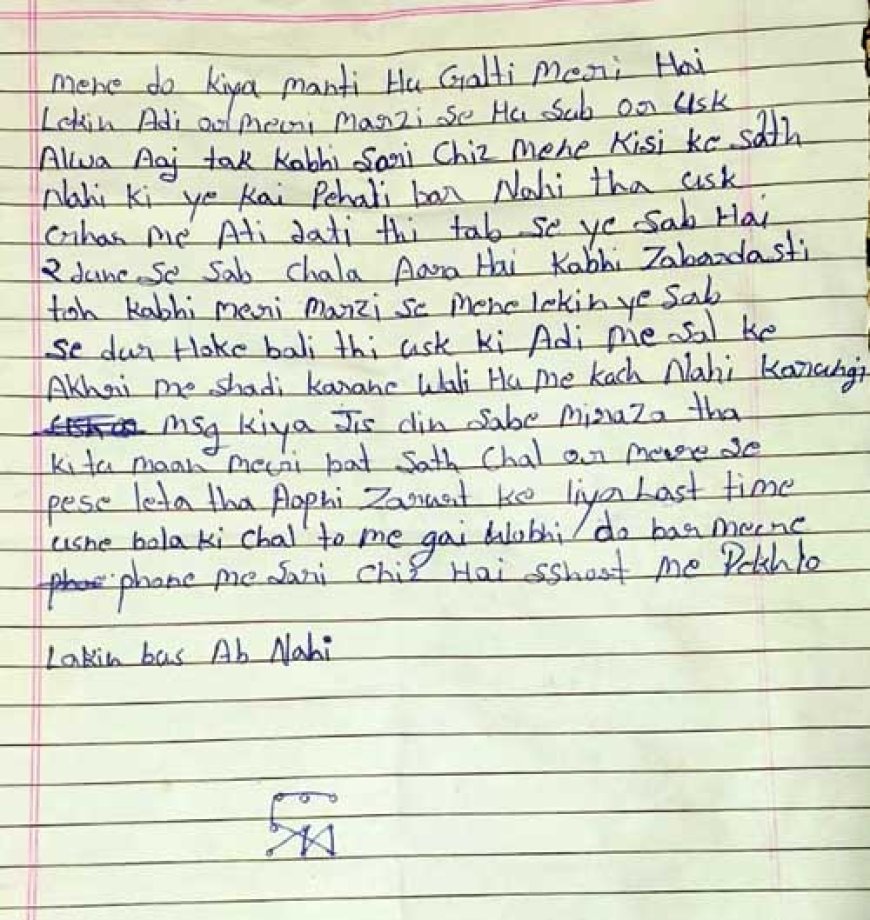 mene do kiya manti Hu Galti Meri Hai
Lekin Adi or meri Marzi se Hu sab or Usk
Alwa Aaj tak Kabhi sari Chiz Mene Kisi ke sath
Nahi ki ye kai Pehali bar Nahi tha usk
Ghar me Ati Jati thi tab se ye sab Hai
2 June se sab chala Aara Hai Kabhi Zabardasti
toh Kabhi meri Marzi se Mene lekin ye sab
se dur Hoke bali thi usk ki Adi me sal ke
Akhri me shadi karane Wali Hu me kach Nahi Karungi
msg kiya Jis din sabe tha
ki tu maan meri bat sath chal or se
pese leta tha Aaphi Zarurt ke liya Last time
usne bola ki chal to me gai Wobhi do bar
phone me sari chiz Hai sshost me Dekhlo
Lakin bus Ab Nahi